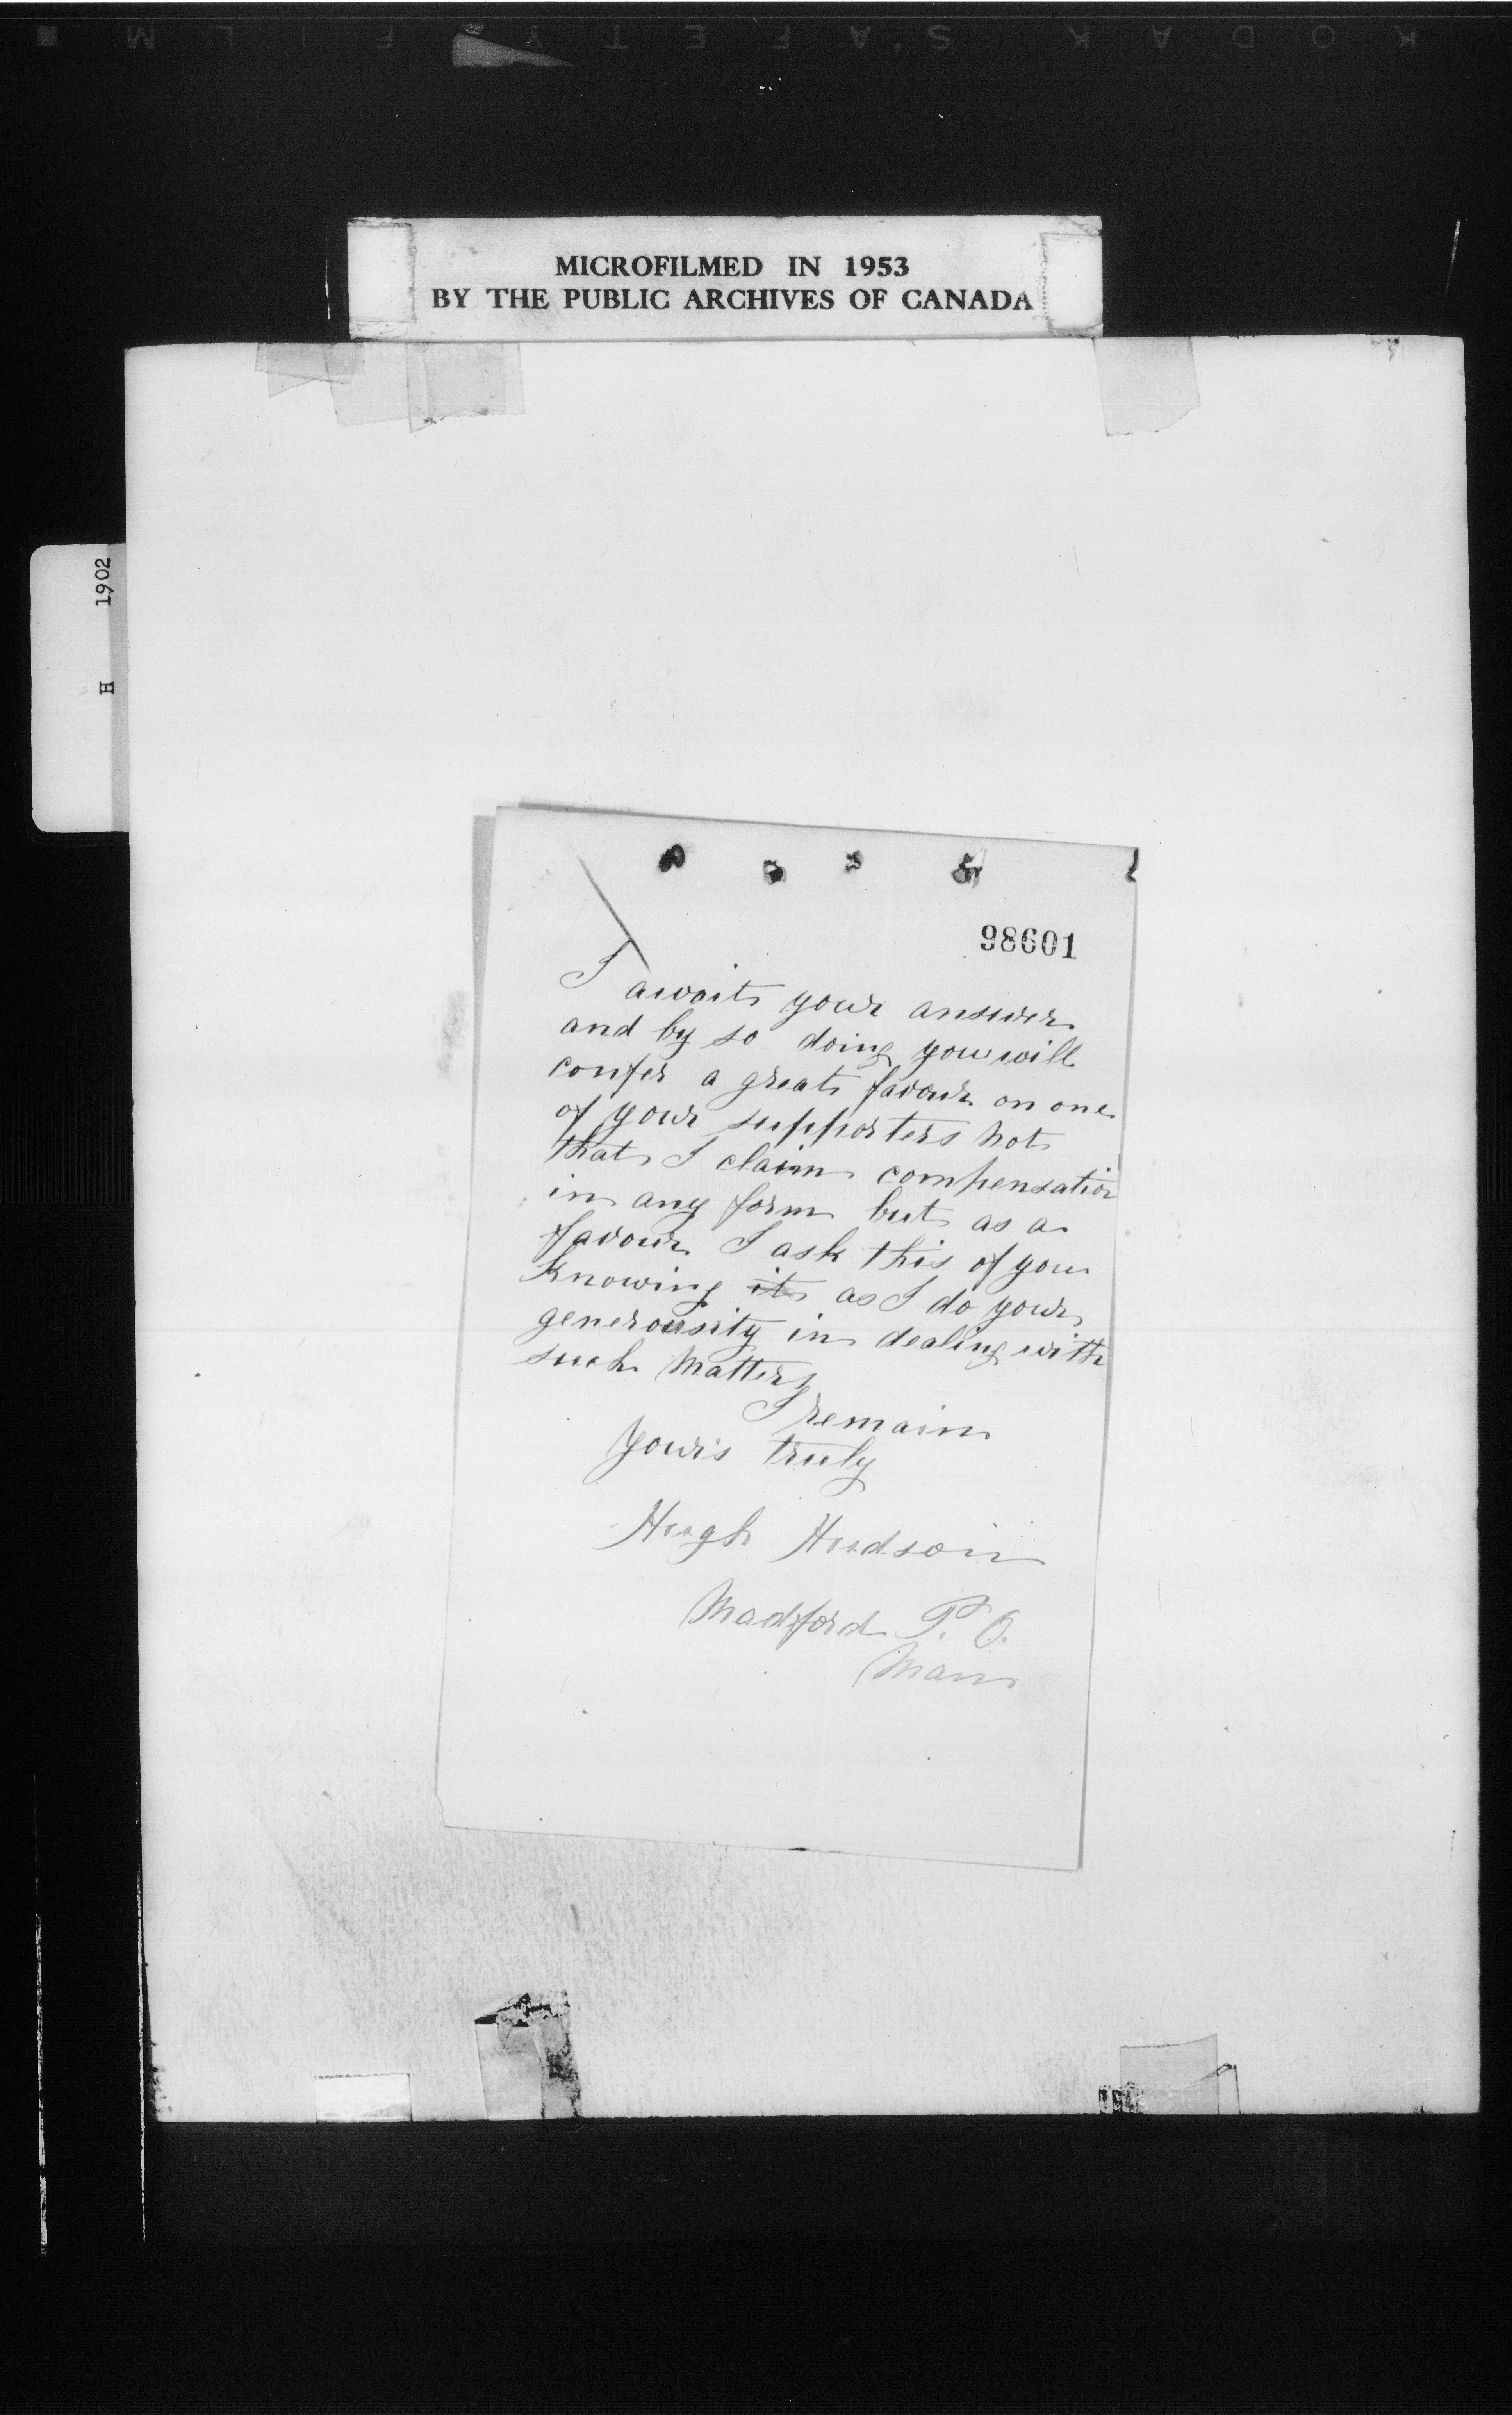 KODAK SAFETY FILM
MICROFILMED IN 1953
BY THE PUBLIC ARCHIVES OF CANADA
H 1902
98601
I await your answer
and by so doing you will
confer a great favour on one
of your supporters not
that I claim compensation
in any form but as a
favour I ask this of you
Knowing it as I do your
generousity in dealing with
such matters
I remain
Yours truly
Hugh Hudson
Madford P. O.
Man